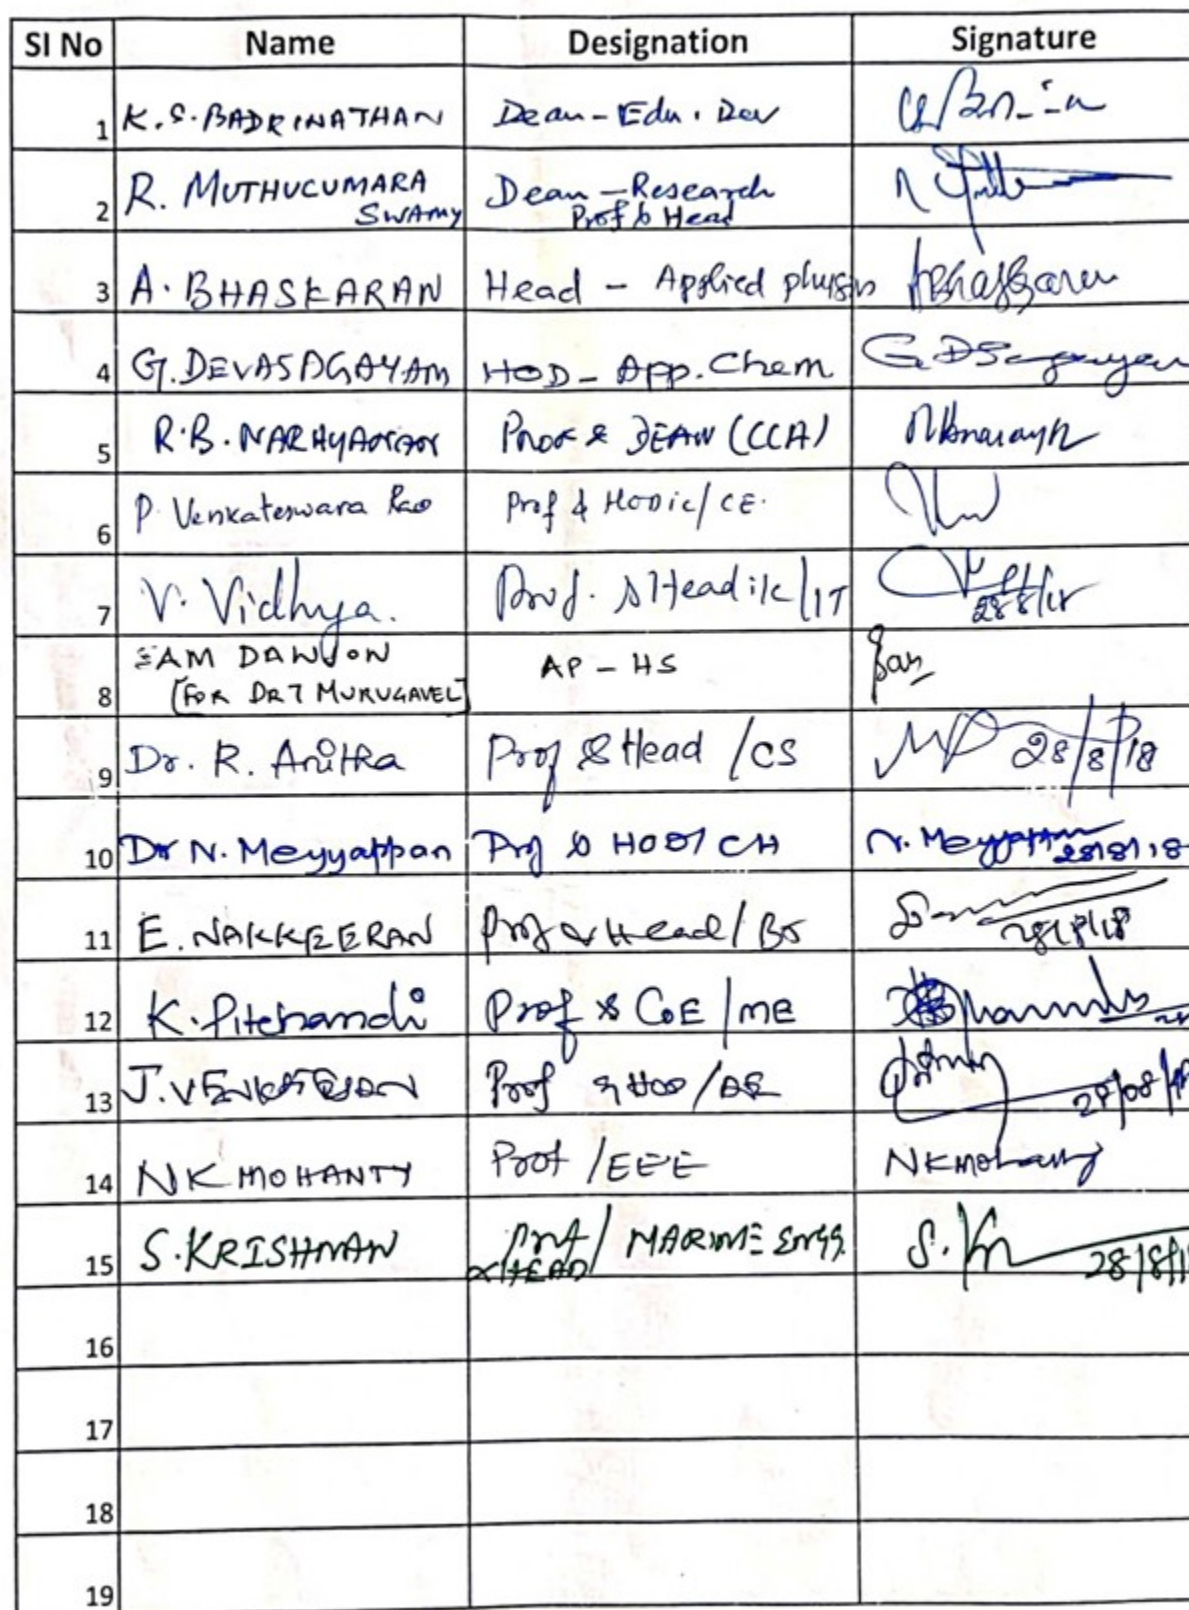 SI No Name Designation Signature
1 K.S. BADRINATHAN Dean - Edu. Dev
2 R. MUTHUCUMARA SWAMY Dean - Research
Prof & Head
3 A. BHASKARAN Head - Applied physics
4 G. DEVASAGAYAM HOD - App. Chem
5 R.B. NARAYANAN Prof & DEAN (CCA)
6 P. Venkateswara Rao Prof & HODic/CE.
7 V. Vidhya. Prof. & Head i/c/IT 28/8/18
8 SAM DAWSON AP - HS Sam
[FOR DR T MURUGAVEL]
9 Dr. R. Anitha Prof & Head /CS 28/8/18
10 Dr N. Meyyappan Prof & HOD/CH N. Meyyappan 28/8/18
11 E. NAKKEERAN Prof & Head/BT 28/8/18
12 K. Pitchandi Prof & CoE/ME
13 J. VENKATESAN Prof & HOD/AE 28/08/18
14 NK MOHANTY Prof /EEE NKMohanty
15 S. KRISHNAN Prof/ MARINE ENGG. S. 28/8/18
& HEAD
16
17
18
19